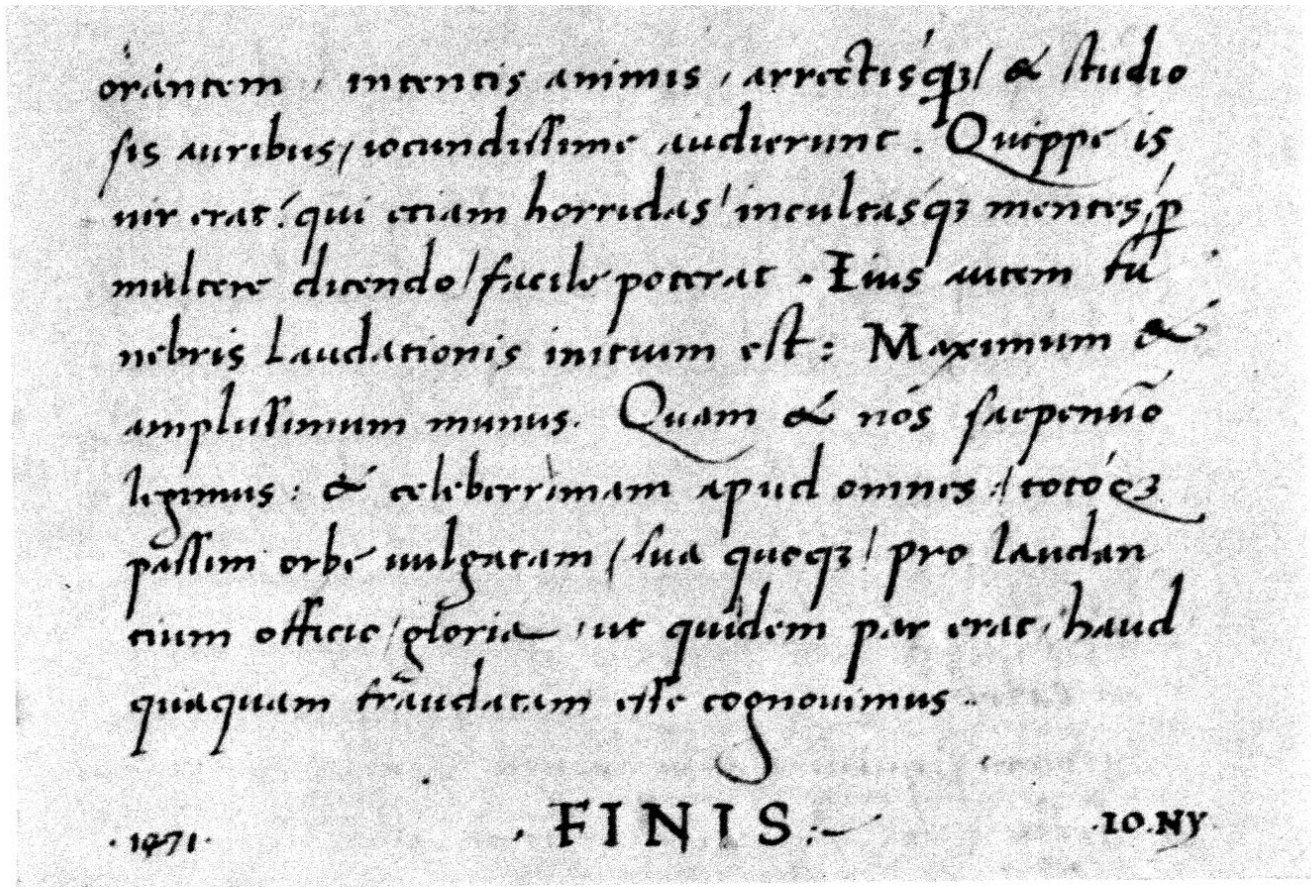 orantem, intentis animis, arrectisq3/ & studio
sis auribus/ iocundissime audierunt. Quippe is
uir erat: qui etiam horridas/ incultasq3 mentes, p̱
mulcere dicendo/ facile poterat. Eius autem fu
nebris laudationis initium est: Maximum &
amplissimum munus. Quam & nos saepenūo
legimus: & celeberrimam apud omnes:/ totoq3
passim orbe uulgatam/ sua quoq3/ pro laudan
tium officio/ gloria, ut quidem par erat, haud
quaquam fraudatam esse cognouimus..
· FINIS:~
·1471·
·IO·NY·